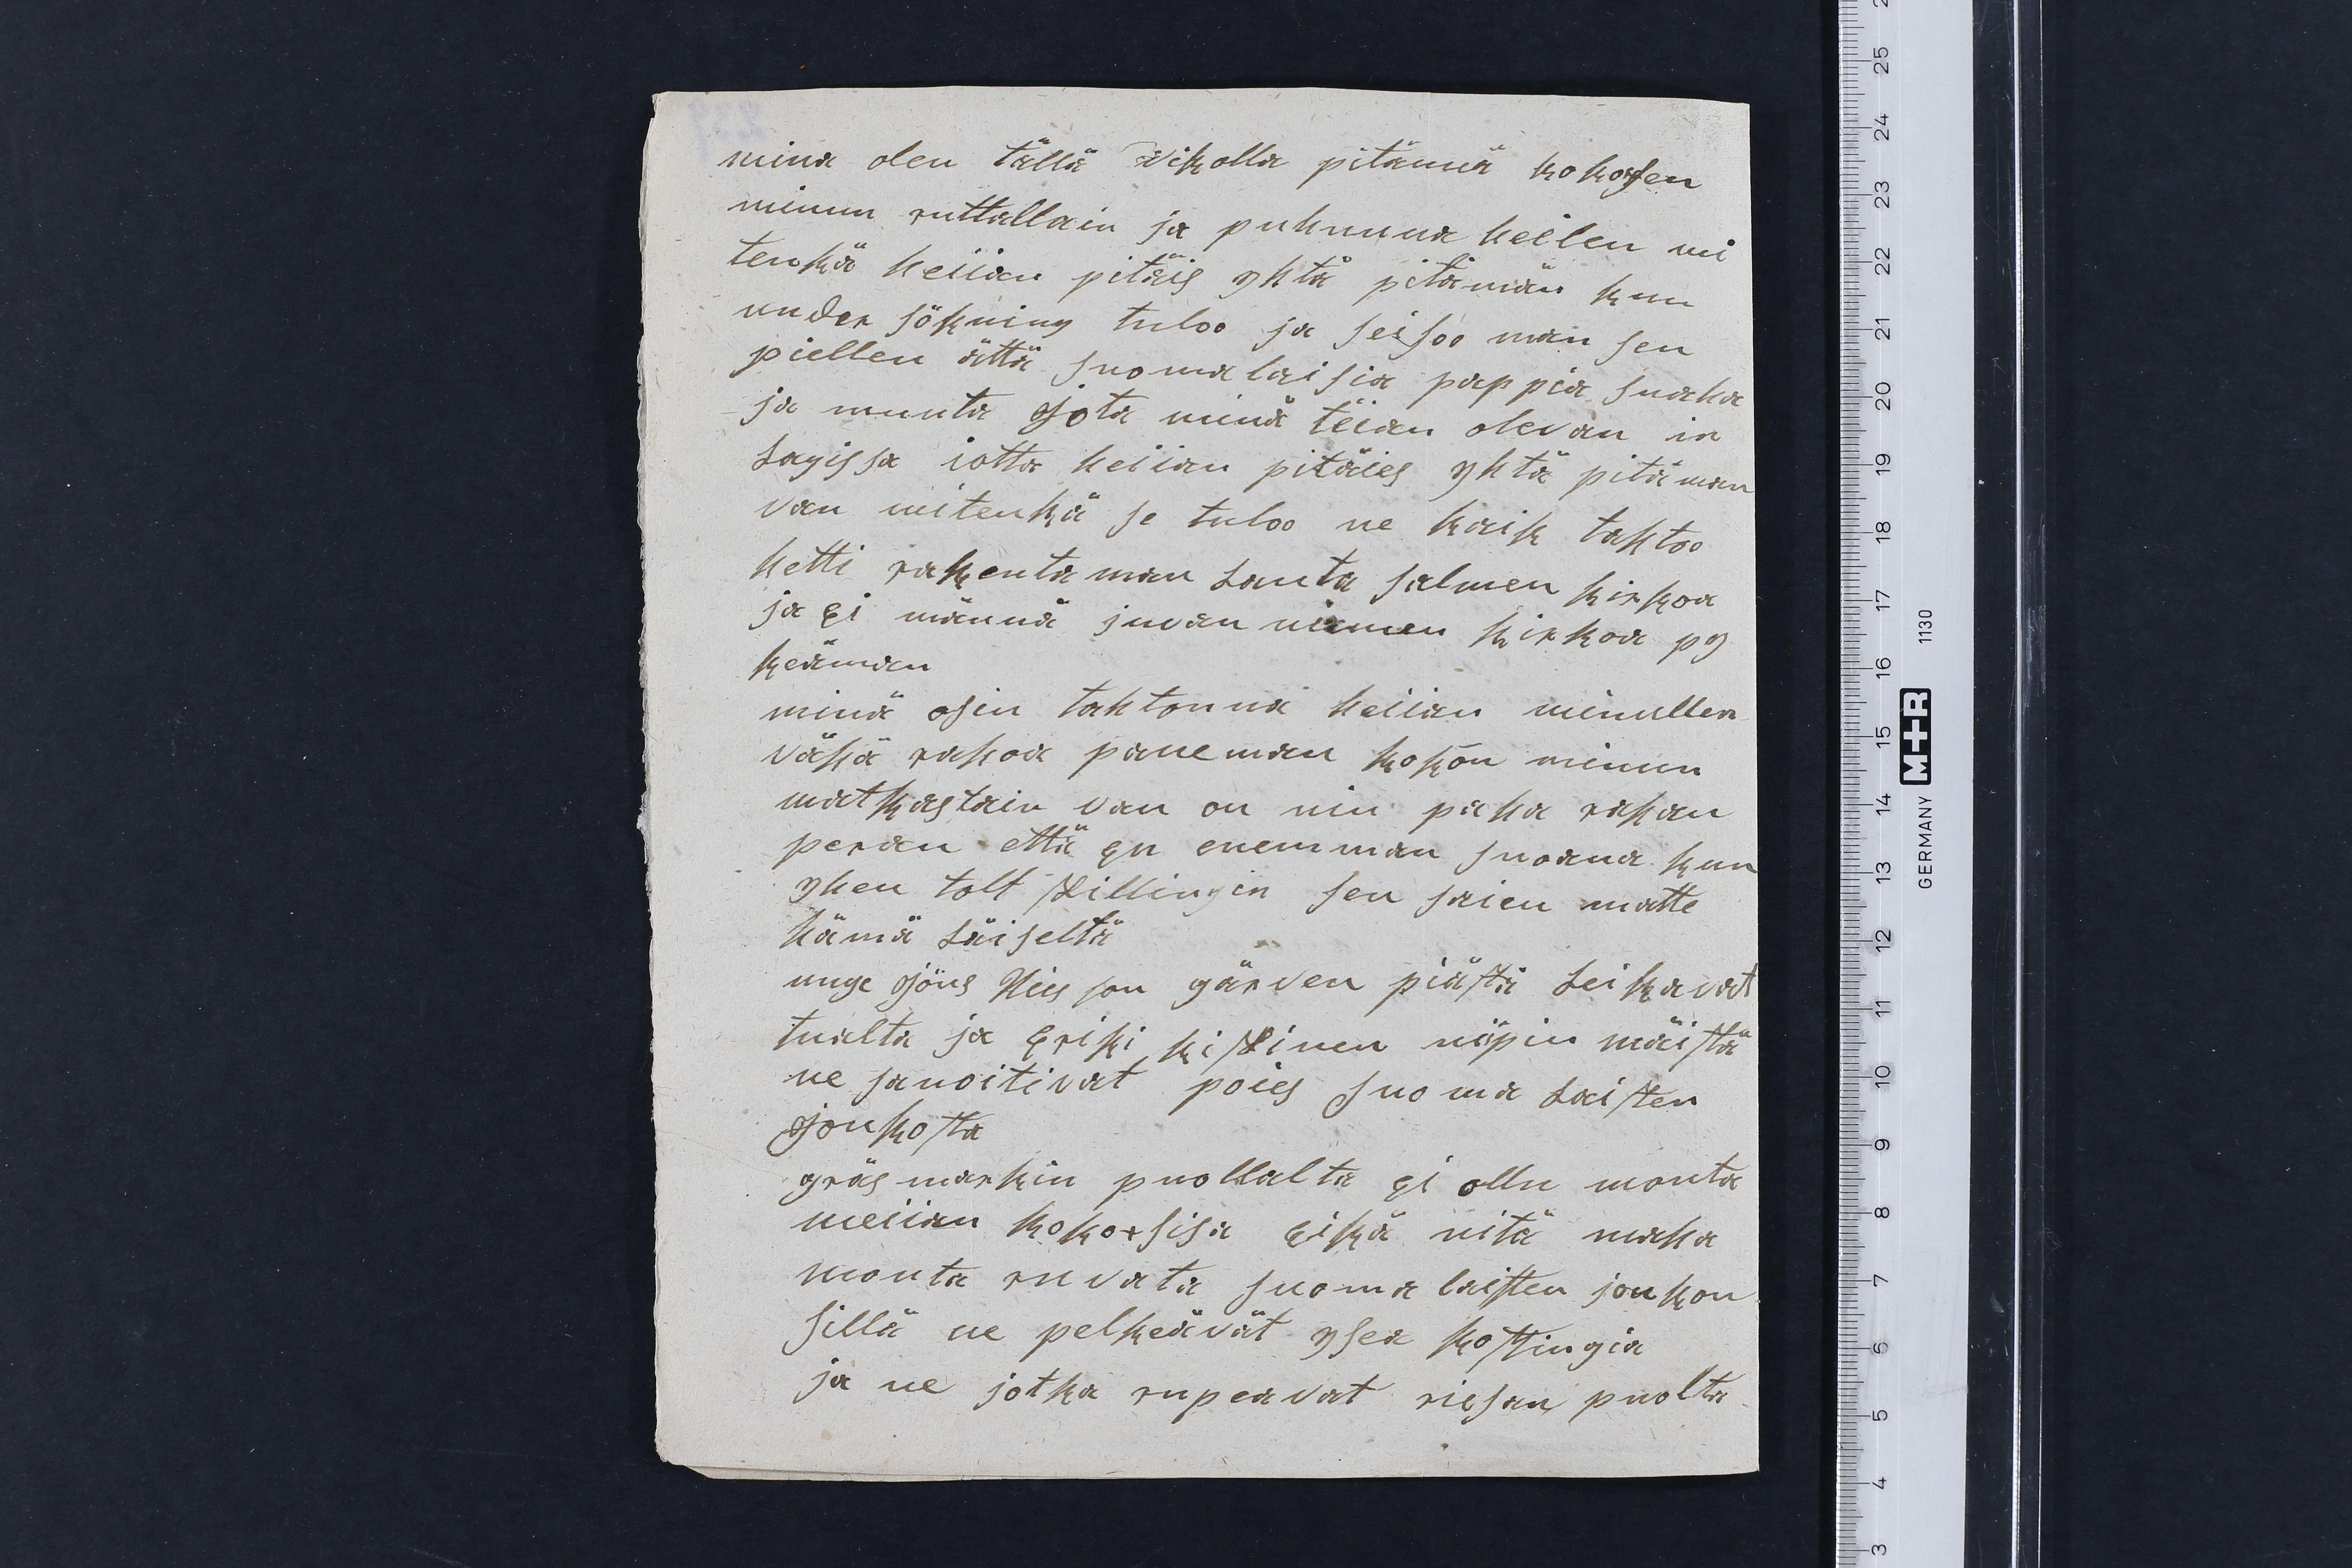 mina olen tällä vikolla pitännä kokoxsen
minun ruttallain ja puhunna heilen mi
tenkä heiian pitäis yhtä pitämän kun
under sökning tuloo ja seisoo män sen
piellen ättä suomalaisia pappia suaha
ja muuta jota minä teian olevan in
Lagissa iotta heiian pitäies yhtä pitäman
van mitenkä se tuloo ne kaik tahtoo
hetti rakentaman Lauta salmen kirkoa
ja ei männä juvan niemen kirkoa py
keäman
minä osin tahtonna heiian minullen
vähä rahoa paneman kokön minun
matkastain van on niin paha rahan
peran että en enemman suoana kun
yhen tolf skillingin sen saien matte
hämä Läiseltä
unge jöns Niesson gärven piästä Leikavat
tualta ja Eriki kiskinen nipin mäistä
ne sanoitivat poies suoma Laisten
joukosta
gräsmarkin puollalta ei ollu monta
meiian kokoxsisa eikä nitä maha
monta ruvata suoma laisten joukon
sillä ne pelkeävät ysea kostingia
ja ne jotka rupeavat riesan puolta